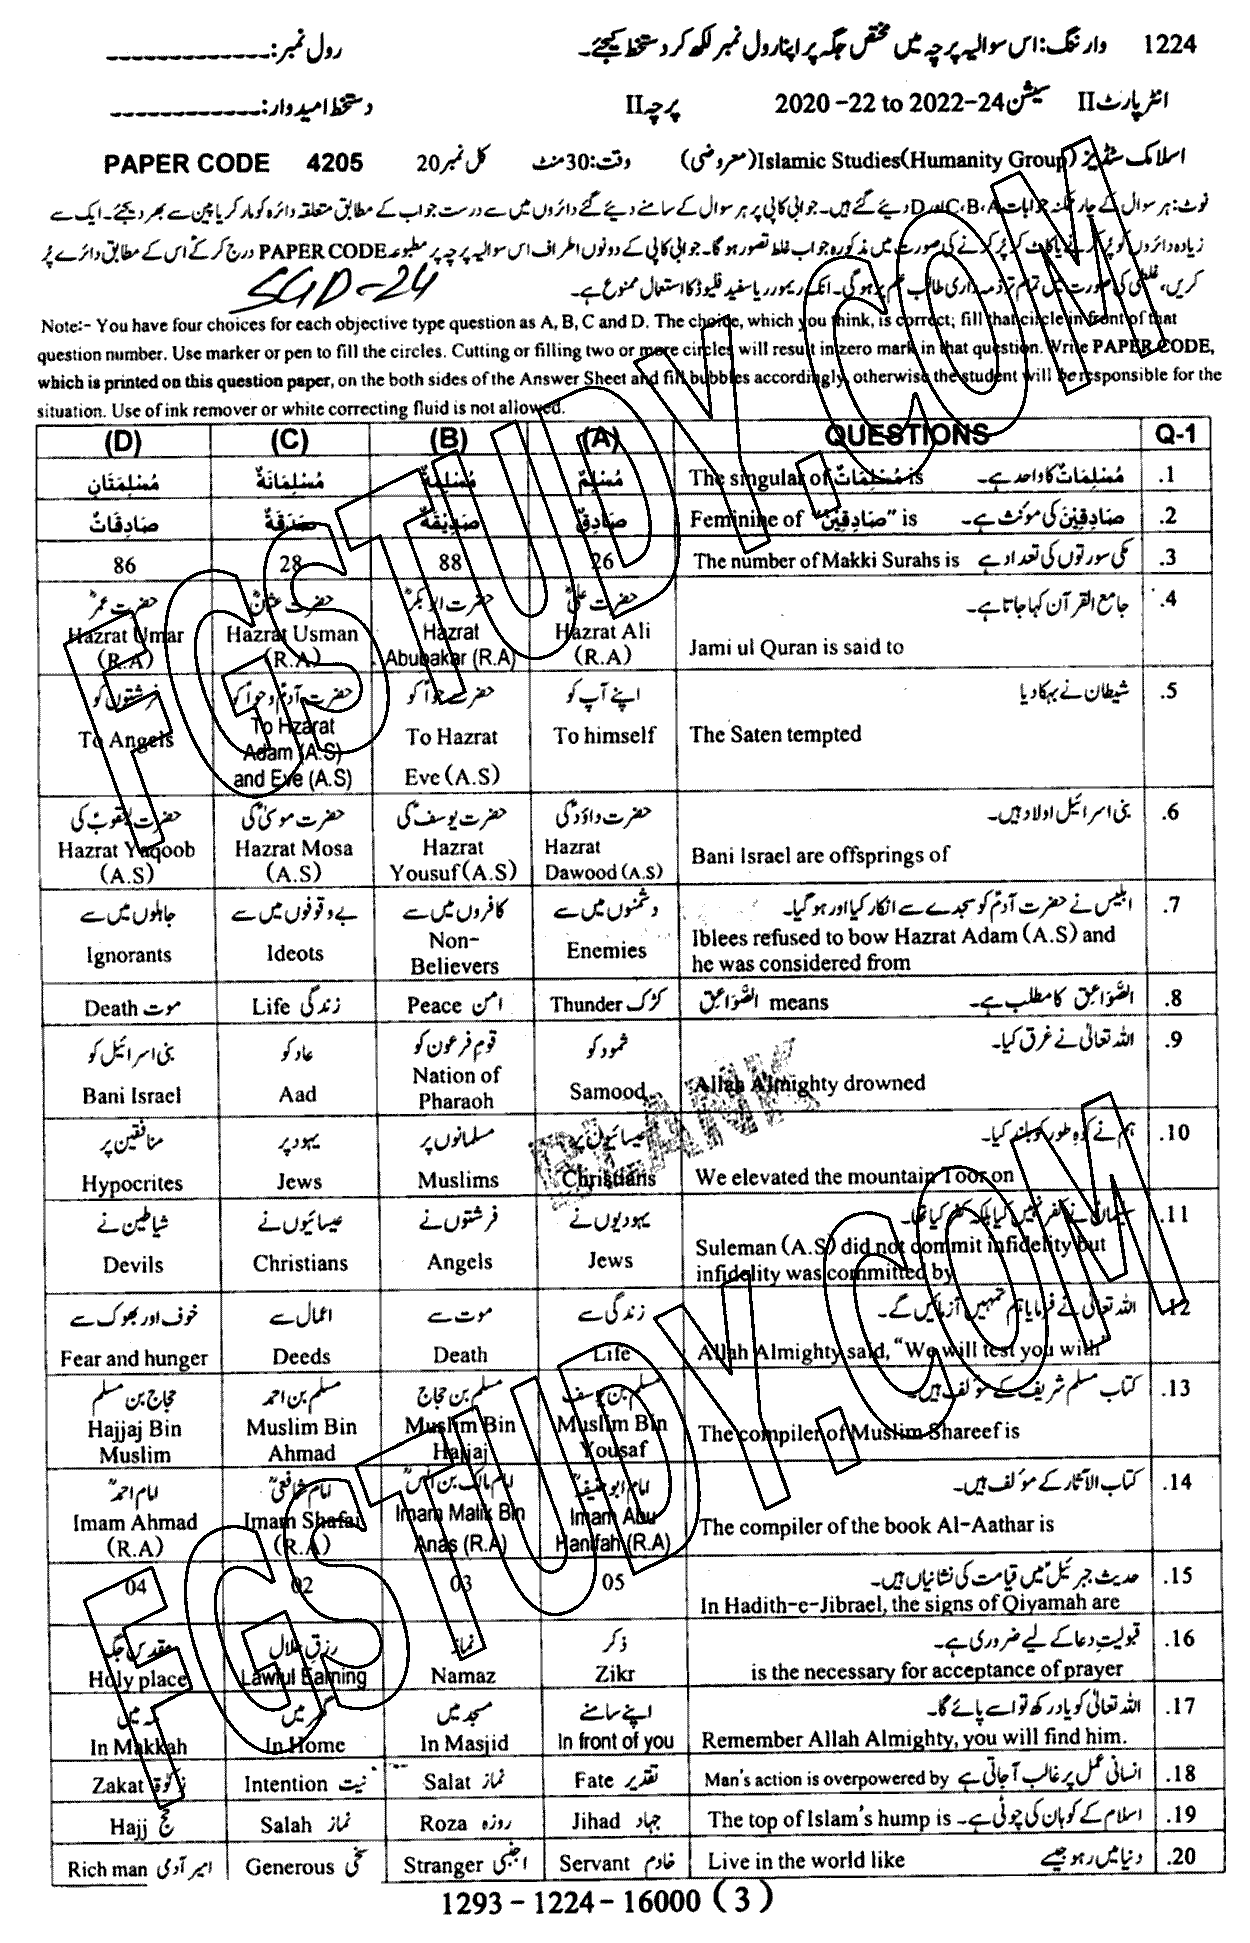 1224 وارننگ: اس سوالیہ پرچہ میں مختص جگہ پر اپنا رول نمبر لکھ کر دستخط کیجئے۔ رول نمبر: ____________
انٹر پارٹ II سیشن 2020-22 to 2022-24 پرچہ II دستخط امیدوار: ____________
اسلامک سٹڈیز (معروضی) Islamic Studies(Humanity Group) وقت: 30 منٹ کل نمبر 20 PAPER CODE 4205
نوٹ: ہر سوال کے چار ممکنہ جوابات A،B،C اور D دیئے گئے ہیں۔ جوابی کاپی پر ہر سوال کے سامنے دیئے گئے دائروں میں سے درست جواب کے مطابق متعلقہ دائرہ کو مارکر یا پین سے بھر دیجئے۔ ایک سے
زیادہ دائروں کو پُر کرنے یا کاٹ کر پُر کرنے کی صورت میں مذکورہ جواب غلط تصور ہو گا۔ جوابی کاپی کے دونوں اطراف اس سوالیہ پرچہ پر مطبوعہ PAPER CODE درج کر کے اس کے مطابق دائرے پُر
کریں، غلطی کی صورت میں تمام تر ذمہ داری طالب علم پر ہو گی۔ انک ریمور ریا سفید فلیوڈ کا استعمال ممنوع ہے۔
SGD-24
Note:- You have four choices for each objective type question as A, B, C and D. The choice, which you think, is correct; fill that circle in front of that
question number. Use marker or pen to fill the circles. Cutting or filling two or more circles will result in zero mark in that question. Write PAPER CODE,
which is printed on this question paper, on the both sides of the Answer Sheet and fill bubbles accordingly, otherwise the student will be responsible for the
situation. Use of ink remover or white correcting fluid is not allowed.
(D) (C) (B) (A) QUESTIONS Q-1
مُسْلِمَتَانِ مُسْلِمَانَةٌ مُسْلِمَةٌ مُسْلِمٌ The singular of مُسْلِمَاتٌ is مُسْلِمَاتٌ کا واحد ہے۔ .1
صَادِقَاتٌ صَدَقَةٌ صَدِيْقَةٌ صَادِقٌ Feminine of "صَادِقِيْنَ" is صَادِقِيْنَ کی مؤنث ہے۔ .2
86 28 88 26 The number of Makki Surahs is مکی سورتوں کی تعداد ہے .3
حضرت عمرؓ حضرت عثمانؓ حضرت ابوبکرؓ حضرت علیؓ جامع القرآن کہا جاتا ہے۔ .4
Hazrat Umar (R.A) Hazrat Usman (R.A) Hazrat Abubakar (R.A) Hazrat Ali (R.A) Jami ul Quran is said to
فرشتوں کو حضرت آدمؑ و حواؑ کو حضرت حواؑ کو اپنے آپ کو شیطان نے بہکا دیا .5
To Angels To Hzarat Adam (A.S) and Eve (A.S) To Hazrat Eve (A.S) To himself The Saten tempted
حضرت یعقوبؑ کی حضرت موسیٰؑ کی حضرت یوسفؑ کی حضرت داؤدؑ کی بنی اسرائیل اولاد ہیں۔ .6
Hazrat Yaqoob (A.S) Hazrat Mosa (A.S) Hazrat Yousuf (A.S) Hazrat Dawood (A.S) Bani Israel are offsprings of
جاہلوں میں سے بے وقوفوں میں سے کافروں میں سے دشمنوں میں سے ابلیس نے حضرت آدمؑ کو سجدے سے انکار کیا اور ہو گیا۔ .7
Ignorants Ideots Non-Believers Enemies Iblees refused to bow Hazrat Adam (A.S) and
he was considered from
Death موت Life زندگی Peace امن Thunder کڑک الصَّوَاعِق means الصَّوَاعِق کا مطلب ہے۔ .8
بنی اسرائیل کو عاد کو قوم فرعون کو ثمود کو اللہ تعالیٰ نے غرق کیا۔ .9
Bani Israel Aad Nation of Pharaoh Samood Allah Almighty drowned
BLANK
منافقین پر یہود پر مسلمانوں پر عیسائیوں پر ہم نے کوہ طور کو بلند کیا۔ .10
Hypocrites Jews Muslims Christians We elevated the mountain Toor on
شیاطین نے عیسائیوں نے فرشتوں نے یہودیوں نے سلیمانؑ نے کفر نہیں کیا بلکہ کفر کیا تھا۔ .11
Devils Christians Angels Jews Suleman (A.S) did not commit infidelity but
infidelity was committed by
خوف اور بھوک سے اعمال سے موت سے زندگی سے اللہ تعالیٰ نے فرمایا ہم تمہیں آزمائیں گے۔ .12
Fear and hunger Deeds Death Life Allah Almighty said, "We will test you with"
حجاج بن مسلم مسلم بن احمد مسلم بن حجاج مسلم بن یوسف کتاب مسلم شریف کے مؤلف ہیں۔ .13
Hajjaj Bin Muslim Muslim Bin Ahmad Muslim Bin Hajjaj Muslim Bin Yousaf The compiler of Muslim Shareef is
امام احمدؒ امام شافعیؒ امام مالک بن انسؒ امام ابو حنیفہؒ کتاب الآثار کے مؤلف ہیں۔ .14
Imam Ahmad (R.A) Imam Shafai (R.A) Imam Malik Bin Anas (R.A) Imam Abu Hanifah (R.A) The compiler of the book Al-Aathar is
04 02 03 05 حدیث جبرئیلؑ میں قیامت کی نشانیاں ہیں۔ .15
In Hadith-e-Jibrael, the signs of Qiyamah are
مقدس جگہ رزق حلال نماز ذکر قبولیت دعا کے لیے ضروری ہے۔ .16
Holy place Lawful Earning Namaz Zikr is the necessary for acceptance of prayer
مکہ میں گھر میں مسجد میں اپنے سامنے اللہ تعالیٰ کو یاد رکھ تو اسے پائے گا۔ .17
In Makkah In Home In Masjid In front of you Remember Allah Almighty, you will find him.
Zakat زکوٰۃ Intention نیت Salat نماز Fate تقدیر Man's action is overpowered by انسانی عمل پر غالب آ جاتی ہے .18
Hajj حج Salah نماز Roza روزہ Jihad جہاد The top of Islam's hump is اسلام کے کوہان کی چوٹی ہے۔ .19
Rich man امیر آدمی Generous سخی Stranger اجنبی Servant خادم Live in the world like دنیا میں رہو جیسے .20
1293-1224-16000 (3)
FGSTUDY.COM
FGSTUDY.COM